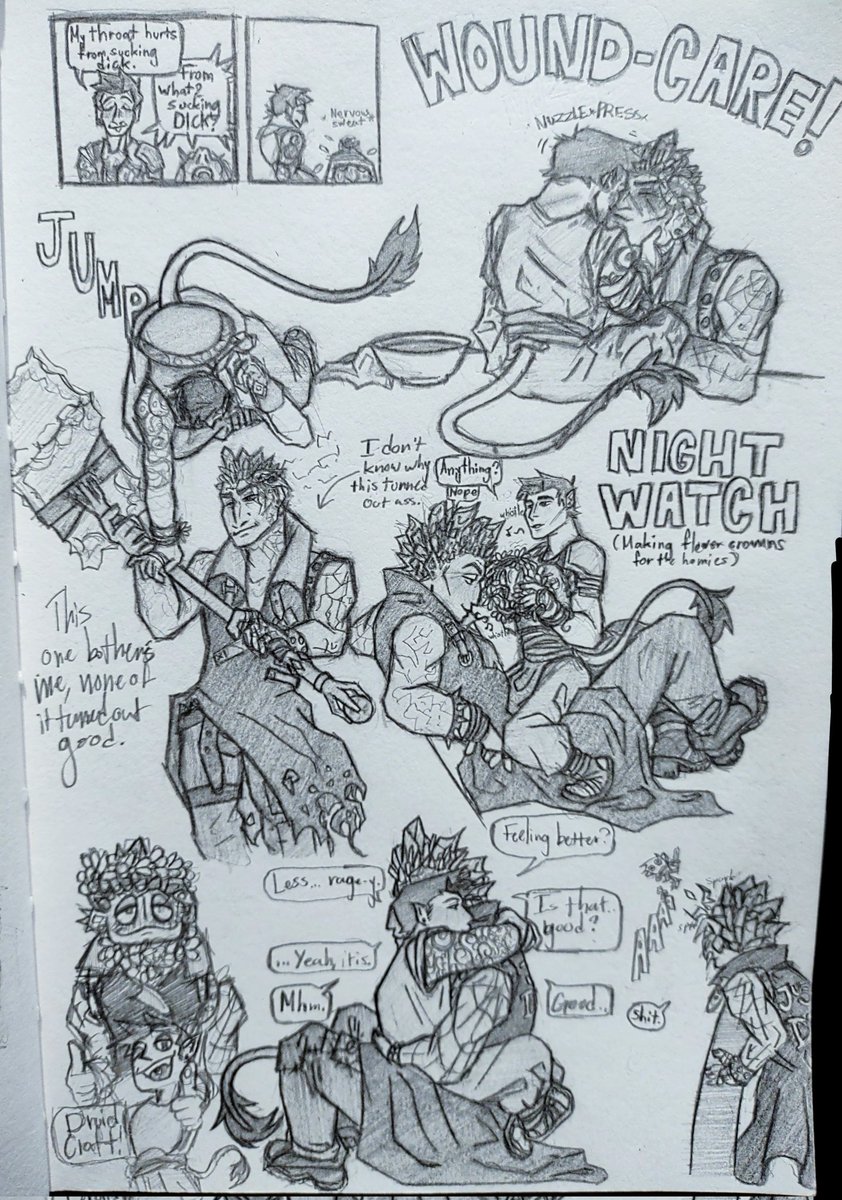 My throat hurts
from sucking
dick.
From
what?
sucking
DICK?
Nervous
sweat
WOUND-CARE!
NUZZLE PRESS
JUMP
I don't
know why
this turned
out ass.
Anything?
Nope
NIGHT
WATCH
(Making flower crowns
for the homies)
This
one bothers
me, none of
it turned out
good.
Feeling better?
Less... rage-y.
Is that
good?
...Yeah, it is.
Mhm.
Good..
AAAA
Shit.
Druid
Craft!